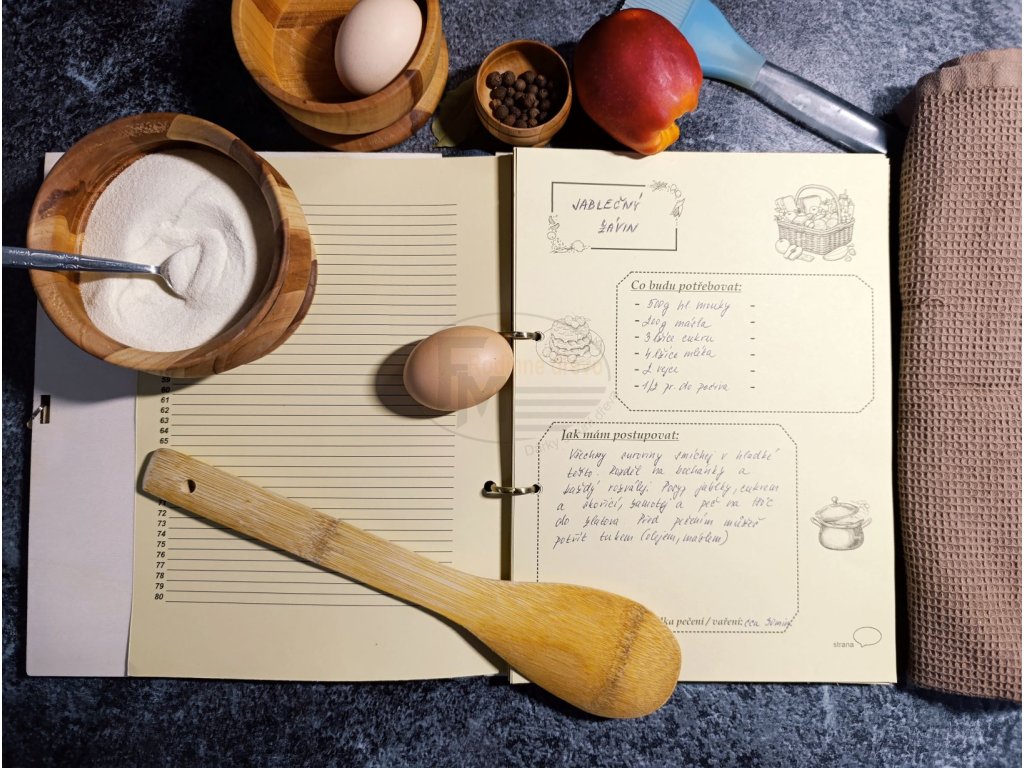 59
60
61
62
63
64
65
72
73
74
75
76
77
78
79
80
JABLEČNÝ
ZÁVIN
Co budu potřebovat:
- 500g hl. mouky -
- 200g másla -
- 3 lžíce cukru -
- 4 lžíce mléka -
- 2 vejce -
- 1/2 pr. do pečiva -
Jak mám postupovat:
Všechny suroviny smíchej v hladké
těsto. Rozděl na bochánky a
každý rozválej. Posyp jablky, cukrem
a skořicí, zamotej a peč na
do zlatova. Před pečením můžeš
potřít tukem (olejem, máslem)
pečení / vaření: cca 30 min
strana